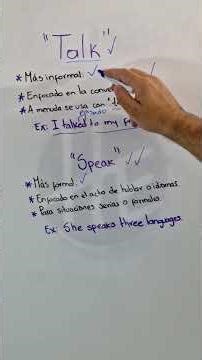 "Talk"
* Más informal.
* Enfocado en la
* A menudo se usa con
pasado
Ex: I talked to my
"Speak"
* Más formal.
* Enfocado en el acto de hablar o idiomas.
* Para situaciones serias o formales.
Ex: She speaks three languages.